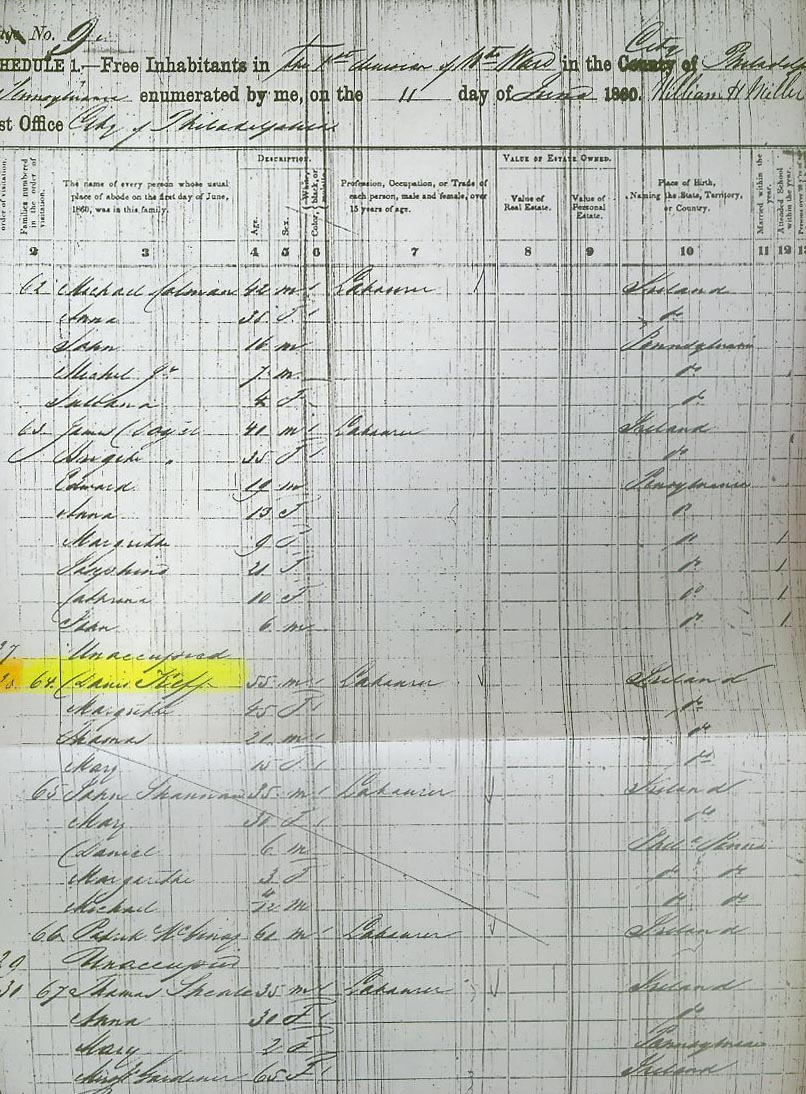 No. 9
SCHEDULE 1.—Free Inhabitants in The 1st division of Ward in the City County of
Pennsylvania enumerated by me, on the 11 day of June 1860. William H Miller
Post Office City of Philadelphia
DESCRIPTION. VALUE OF ESTATE OWNED.
order of visitation. Families numbered in the order of visitation. The name of every person whose usual place of abode on the first day of June, 1860, was in this family. Age. Sex. Color, White, black, or mulatto. Profession, Occupation, or Trade of each person, male and female, over 15 years of age. Value of Real Estate. Value of Personal Estate. Place of Birth, Naming the State, Territory, or Country. Married within the year. Attended School within the year.
2 3 4 5 6 7 8 9 10 11 12 13
62 Michael Colman 42 m Labaurer Ireland
Anna 35 F do
John 16 m Pennsylvania
Michel Jr 7 m do
Juliana 4 F do
63 James 40 m Labaurer Ireland
35 F do
Edward 19 m Pensylvania
Anna 13 F do
Margrithe 9 F do 1
Josephine 21 F do
Cathrina 10 F do 1
6 m do 1
27 Unaccupied
28 64 Kiff 55 m Labaurer Ireland
Margrithe 45 F do
Thamas 20 m do
Mary 15 F do
65 John Shannan 35 m Labaurer Ireland
Mary 30 F do
Daniel 6 m Phila Penna
Margarithe 3 F do do
Michael 4/12 m do do
66 Patrick 60 m Labaurer Ireland
29 Unaccupied
30 67 Thamas 35 m Labaurer Ireland
Anna 30 F do
Mary 2 F Pennsylvania
Gardener 65 F Ireland